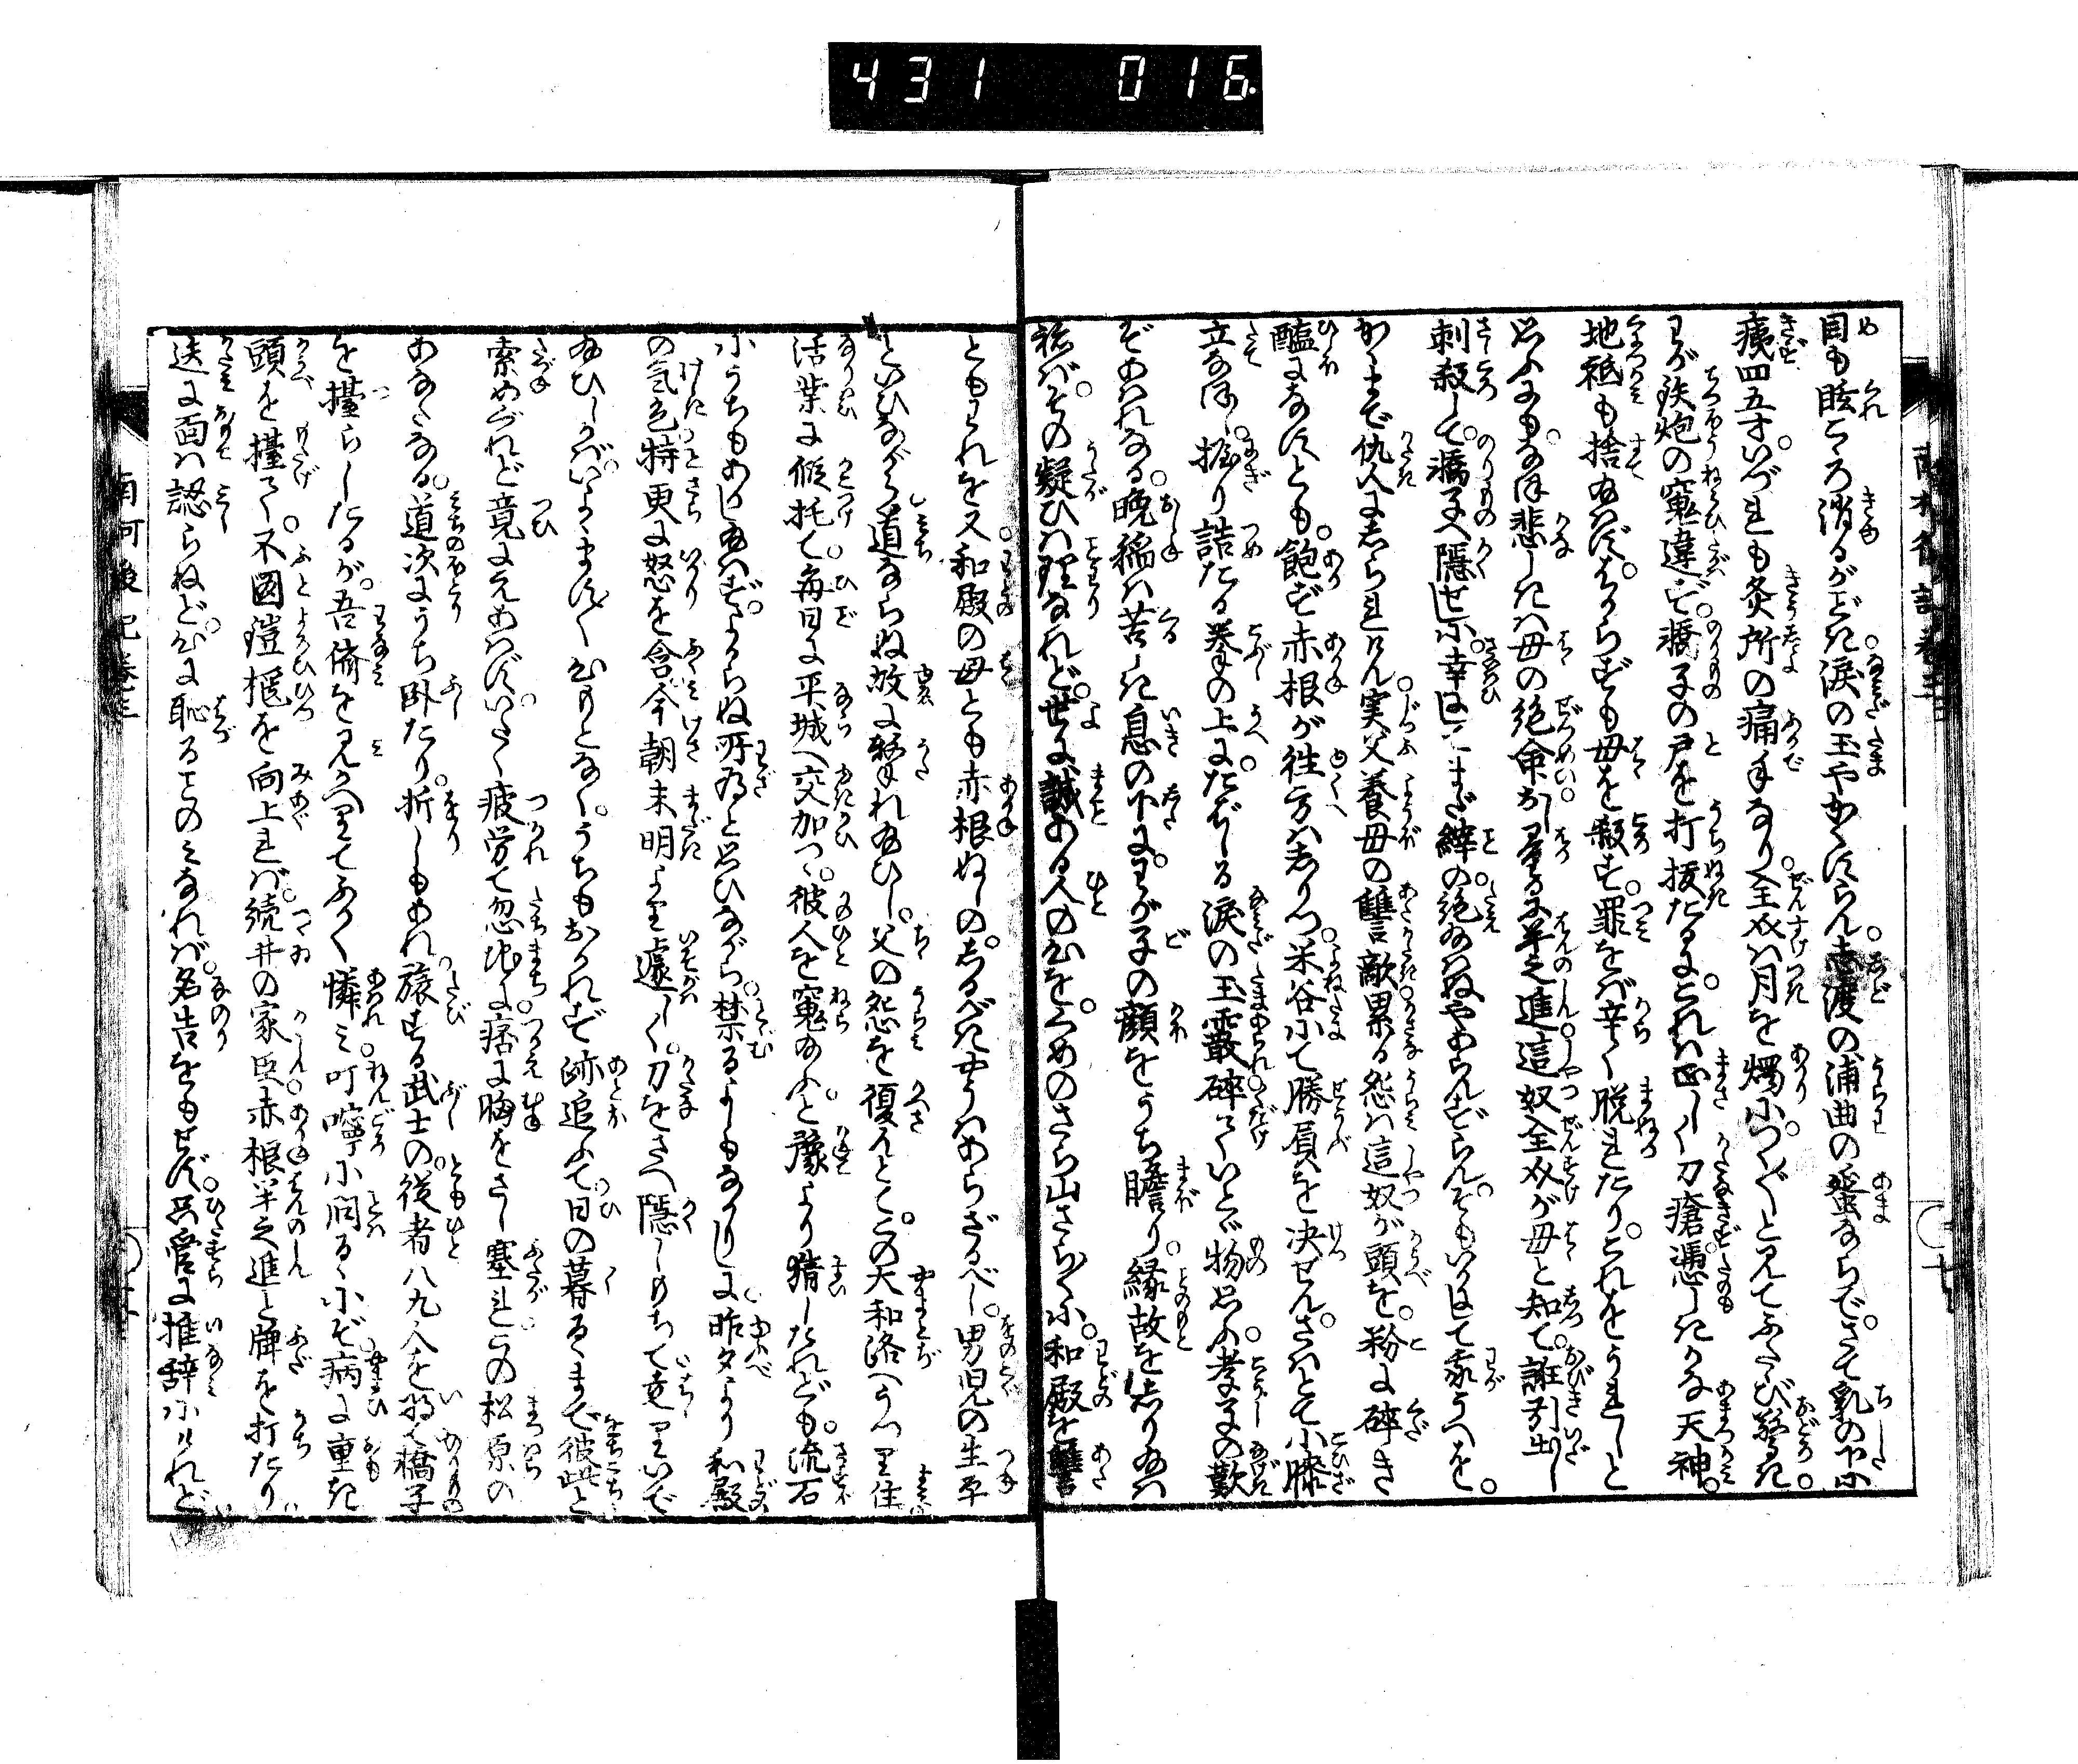 431 016
目も眩こゝろ消るがごとき涙の玉やかくすらん志渡の浦曲の蜑ならでさて乳の下に
痍四五寸いづれも灸所の痛手なり全〓は月を燭につく〴〵と見てふたゝび驚き
わが鉄炮の窺違で轎子の戸を打抜たるにこれは正しく刀瘡憑しきかな天神
地祇も捨給はずはからずも母を殺す罪をば辛く脱れたりこれをうれしと
思ふにもなほ悲しきは母の絶命おし量るに半之進這奴全〓が母と知て誑引出し
刺殺して轎子へ隠せしに幸はひにまだ縡の絶給はぬやあらんずらんそもいかにして家うへを
かくまで仇人にしられけん実父養母の讐敵累る怨は這奴が頭を粉に砕き
醢になすとも飽ず赤根が往方はしりつ米谷にて勝負を決せんさはとて小膝
立なほし握り詰たる拳の上にたばしる涙の玉霰碎ていとゞ物思ふ孝子の歎
ぞあはれなる晩稲は苦しき息の下にわが子の顔をうち瞻り縁故をしり給は
ねばその疑ひは理なれど世に誠ある人の心をくめのさら山さら〳〵に和殿を讐
ともわれを又和殿の母とも赤根ぬしのしるべきやうはあらざるべし男児の生平
といひながら道ならぬ故に轎れ給ひし父の怨を復んとこの大和路へうつり住
活業に假托て毎日に平城へ交加つゝ彼人を窺給ふと豫より猜したれども流石
にうちもあけ給はずよからぬ所為と思ひながら禁るよしもなかりしに昨夕より和殿
の気色特更に怒を含今朝未明より遽しく刀をさへ隠しもちて走りいで
給ひしかばいよゝます〳〵心もとなくうちもおかれず跡追ふて日の暮るゝまで彼此と
索めぐれど竟にえあはずいたく疲労て忽地に痞に胸をさし塞れこの松原の
あなたなる道次にうち臥たり折しもあれ旅する武士の従者八九人を将て轎子
を擡らしたるが吾儕を見かへりてふかく憐み叮嚀に問るゝにぞ病に重き
頭を擡て不図鎧櫃を向上れば続井の家臣赤根半之進と牌を打たり
迭に面は認らねど心に恥るとのみなれば名告をもせず只管に推辞にけれど
南柯後記巻之三